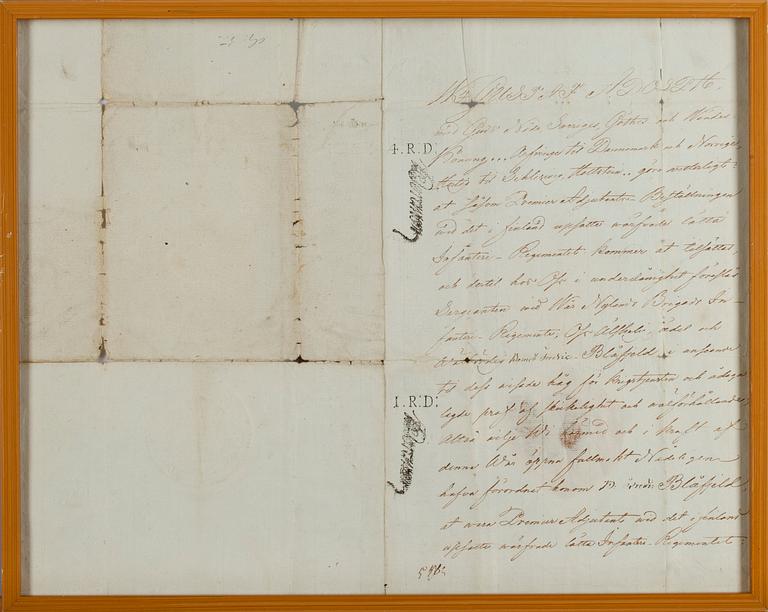 Wi GUSTAF ADOLPH,
med Guds Nåde Sveriges, Göthes och Wendes
Konung... Arfvinge till Dannemark och Norrige,
Hertig til Schleswig, Hollstein.. göra vetterligt:
at såsom Premier Adjutants Beställningen
wid det i Finland upsatte wärfvade lätta
Infanterie-Regimentet kommer at tilsättas,
och dertil hos Oss i underdånighet föreslås
Sergeanten wid Wår Nylands Brigads In-
fanterie-Regemente, Oss Älskelig, ädel och
Blåfjeld, i anseende
til dess wisade håg för krigstjensten och ådaga
lagde prof af skickelighet och wälförhållande;
Altså vilje Wi härmed och i kraft af
denne Wår öpne fullmakt Nådeligen
hafva förordnet honom Blåfjeld,
at wara Premier Adjutant wid det i Finland
upsatte wärfvade lätta Infanterie-Regimentet:
4.R.D.
1.R.D.